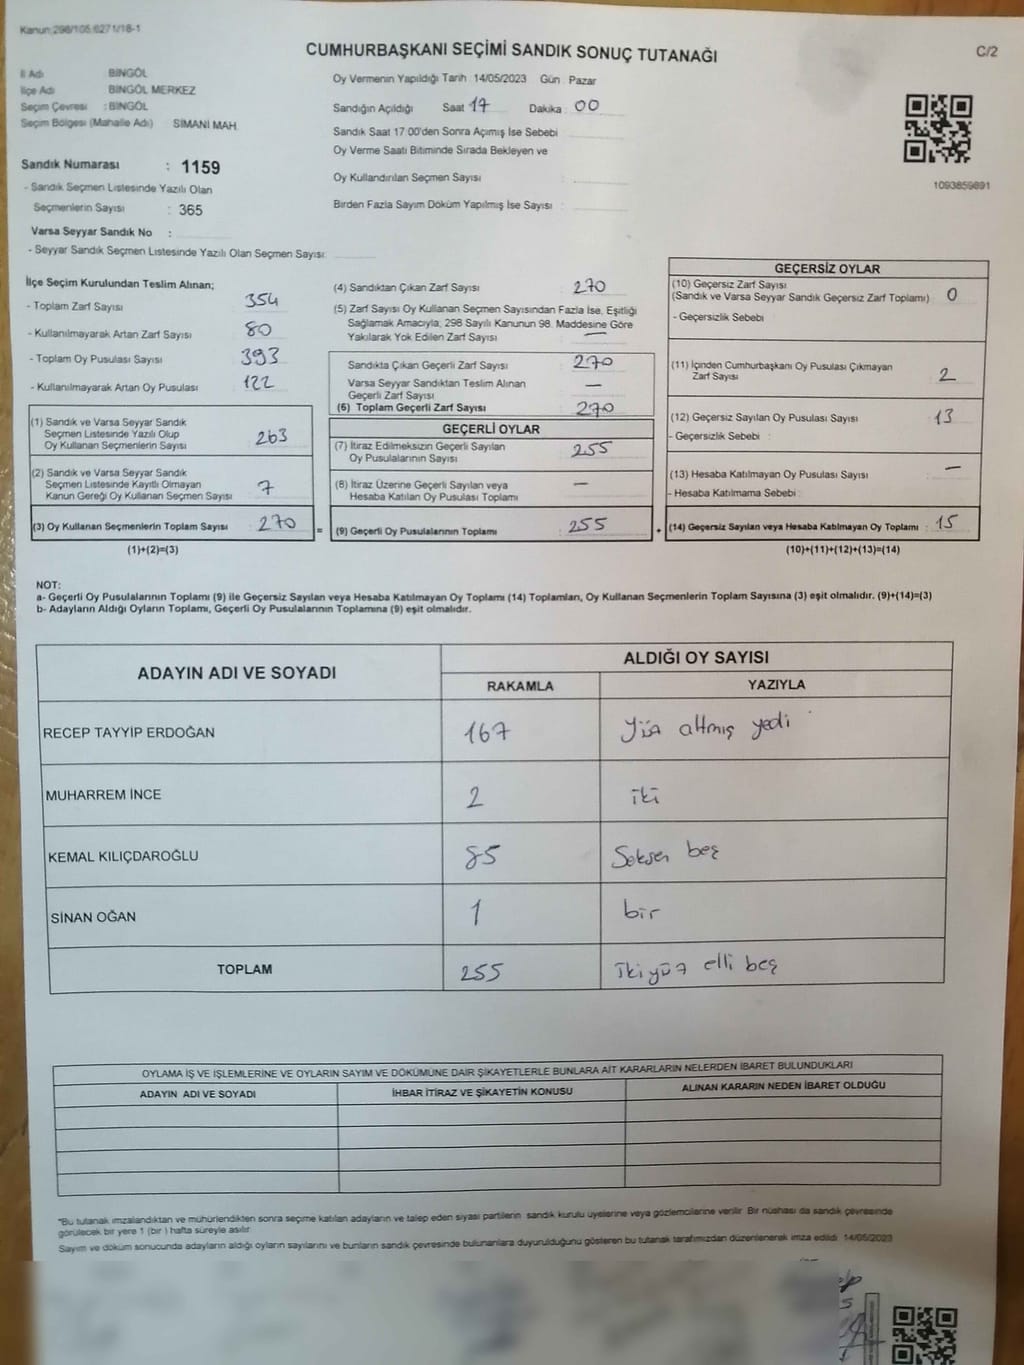 Kanun:298/105,6271/18-1
CUMHURBAŞKANI SEÇİMİ SANDIK SONUÇ TUTANAĞI
C/2
İl Adı BİNGÖL
İlçe Adı BİNGÖL MERKEZ
Seçim Çevresi : BİNGÖL
Seçim Bölgesi (Mahalle Adı) SİMANİ MAH.
Oy Vermenin Yapıldığı Tarih : 14/05/2023 Gün : Pazar
Sandığın Açıldığı Saat 17 Dakika : 00
Sandık Saat 17.00'den Sonra Açımış İse Sebebi
Oy Verme Saati Bitiminde Sırada Bekleyen ve
Oy Kullandırılan Seçmen Sayısı :
Birden Fazla Sayım Döküm Yapılmış İse Sayısı :
1093859891
Sandık Numarası : 1159
- Sandık Seçmen Listesinde Yazılı Olan
Seçmenlerin Sayısı : 365
Varsa Seyyar Sandık No :
- Seyyar Sandık Seçmen Listesinde Yazılı Olan Seçmen Sayısı:
İlçe Seçim Kurulundan Teslim Alınan;
- Toplam Zarf Sayısı 354
- Kullanılmayarak Artan Zarf Sayısı 80
- Toplam Oy Pusulası Sayısı 393
- Kullanılmayarak Artan Oy Pusulası 122
(1) Sandık ve Varsa Seyyar Sandık
Seçmen Listesinde Yazılı Olup
Oy Kullanan Seçmenlerin Sayısı 263
(2) Sandık ve Varsa Seyyar Sandık
Seçmen Listesinde Kayıtlı Olmayan
Kanun Gereği Oy Kullanan Seçmen Sayısı 7
(3) Oy Kullanan Seçmenlerin Toplam Sayısı 270
(1)+(2)=(3)
(4) Sandıktan Çıkan Zarf Sayısı 270
(5) Zarf Sayısı Oy Kullanan Seçmen Sayısından Fazla İse, Eşitliği
Sağlamak Amacıyla, 298 Sayılı Kanunun 98. Maddesine Göre
Yakılarak Yok Edilen Zarf Sayısı —
Sandıkta Çıkan Geçerli Zarf Sayısı 270
Varsa Seyyar Sandıktan Teslim Alınan
Geçerli Zarf Sayısı —
(6) Toplam Geçerli Zarf Sayısı 270
GEÇERLİ OYLAR
(7) İtiraz Edilmeksizin Geçerli Sayılan
Oy Pusulalarının Sayısı 255
(8) İtiraz Üzerine Geçerli Sayılan veya
Hesaba Katılan Oy Pusulası Toplamı —
= (9) Geçerli Oy Pusulalarının Toplamı 255 +
GEÇERSİZ OYLAR
(10) Geçersiz Zarf Sayısı
(Sandık ve Varsa Seyyar Sandık Geçersiz Zarf Toplamı) 0
- Geçersizlik Sebebi :
(11) İçinden Cumhurbaşkanı Oy Pusulası Çıkmayan
Zarf Sayısı 2
(12) Geçersiz Sayılan Oy Pusulası Sayısı 13
- Geçersizlik Sebebi :
(13) Hesaba Katılmayan Oy Pusulası Sayısı —
- Hesaba Katılmama Sebebi :
(14) Geçersiz Sayılan veya Hesaba Katılmayan Oy Toplamı : 15
(10)+(11)+(12)+(13)=(14)
NOT:
a- Geçerli Oy Pusulalarının Toplamı (9) ile Geçersiz Sayılan veya Hesaba Katılmayan Oy Toplamı (14) Toplamları, Oy Kullanan Seçmenlerin Toplam Sayısına (3) eşit olmalıdır. (9)+(14)=(3)
b- Adayların Aldığı Oyların Toplamı, Geçerli Oy Pusulalarının Toplamına (9) eşit olmalıdır.
ADAYIN ADI VE SOYADI
ALDIĞI OY SAYISI
RAKAMLA YAZIYLA
RECEP TAYYİP ERDOĞAN 167 yüz altmış yedi
MUHARREM İNCE 2 iki
KEMAL KILIÇDAROĞLU 85 Seksen beş
SİNAN OĞAN 1 bir
TOPLAM 255 ikiyüz elli beş
OYLAMA İŞ VE İŞLEMLERİNE VE OYLARIN SAYIM VE DÖKÜMÜNE DAİR ŞİKAYETLERLE BUNLARA AİT KARARLARIN NELERDEN İBARET BULUNDUKLARI
ADAYIN ADI VE SOYADI İHBAR İTİRAZ VE ŞİKAYETİN KONUSU ALINAN KARARIN NEDEN İBARET OLDUĞU
*Bu tutanak imzalandıktan ve mühürlendikten sonra seçime katılan adayların ve talep eden siyasi partilerin sandık kurulu üyelerine veya gözlemcilerine verilir. Bir nüshası da sandık çevresinde
görülecek bir yere 1 (bir) hafta süreyle asılır.
Sayım ve döküm sonucunda adayların aldığı oyların sayılarını ve bunların sandık çevresinde bulunanlara duyurulduğunu gösteren bu tutanak tarafımızdan düzenlenerek imza edildi. 14/05/2023